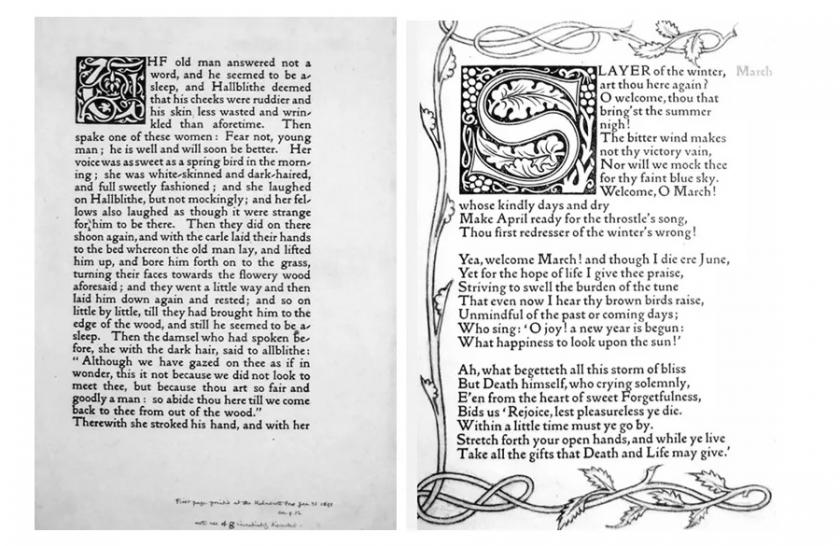 THF old man answered not a
word, and he seemed to be a-
sleep, and Hallblithe deemed
that his cheeks were ruddier and
his skin less wasted and wrin-
kled than aforetime. Then
spake one of these women: Fear not, young
man; he is well and will soon be better. Her
voice was as sweet as a spring bird in the morn-
ing; she was white-skinned and dark-haired,
and full sweetly fashioned; and she laughed
on Hallblithe, but not mockingly; and her fel-
lows also laughed as though it were strange
for him to be there. Then they did on there
shoon again, and with the carle laid their hands
to the bed whereon the old man lay, and lifted
him up, and bore him forth on to the grass,
turning their faces towards the flowery wood
aforesaid; and they went a little way and then
laid him down again and rested; and so on
little by little, till they had brought him to the
edge of the wood, and still he seemed to be a-
sleep. Then the damsel who had spoken be-
fore, she with the dark hair, said to allblithe:
“Although we have gazed on thee as if in
wonder, this it not because we did not look to
meet thee, but because thou art so fair and
goodly a man: so abide thou here till we come
back to thee from out of the wood.”
Therewith she stroked his hand, and with her
First page printed at the Kelmscott Press Jan 31 1891
SLAYER of the winter, March
art thou here again?
O welcome, thou that
bring'st the summer
nigh!
The bitter wind makes
not thy victory vain,
Nor will we mock thee
for thy faint blue sky.
Welcome, O March!
whose kindly days and dry
Make April ready for the throstle's song,
Thou first redresser of the winter's wrong!
Yea, welcome March! and though I die ere June,
Yet for the hope of life I give thee praise,
Striving to swell the burden of the tune
That even now I hear thy brown birds raise,
Unmindful of the past or coming days;
Who sing: ‘O joy! a new year is begun:
What happiness to look upon the sun!’
Ah, what begetteth all this storm of bliss
But Death himself, who crying solemnly,
E'en from the heart of sweet Forgetfulness,
Bids us ‘Rejoice, lest pleasureless ye die.
Within a little time must ye go by.
Stretch forth your open hands, and while ye live
Take all the gifts that Death and Life may give.’